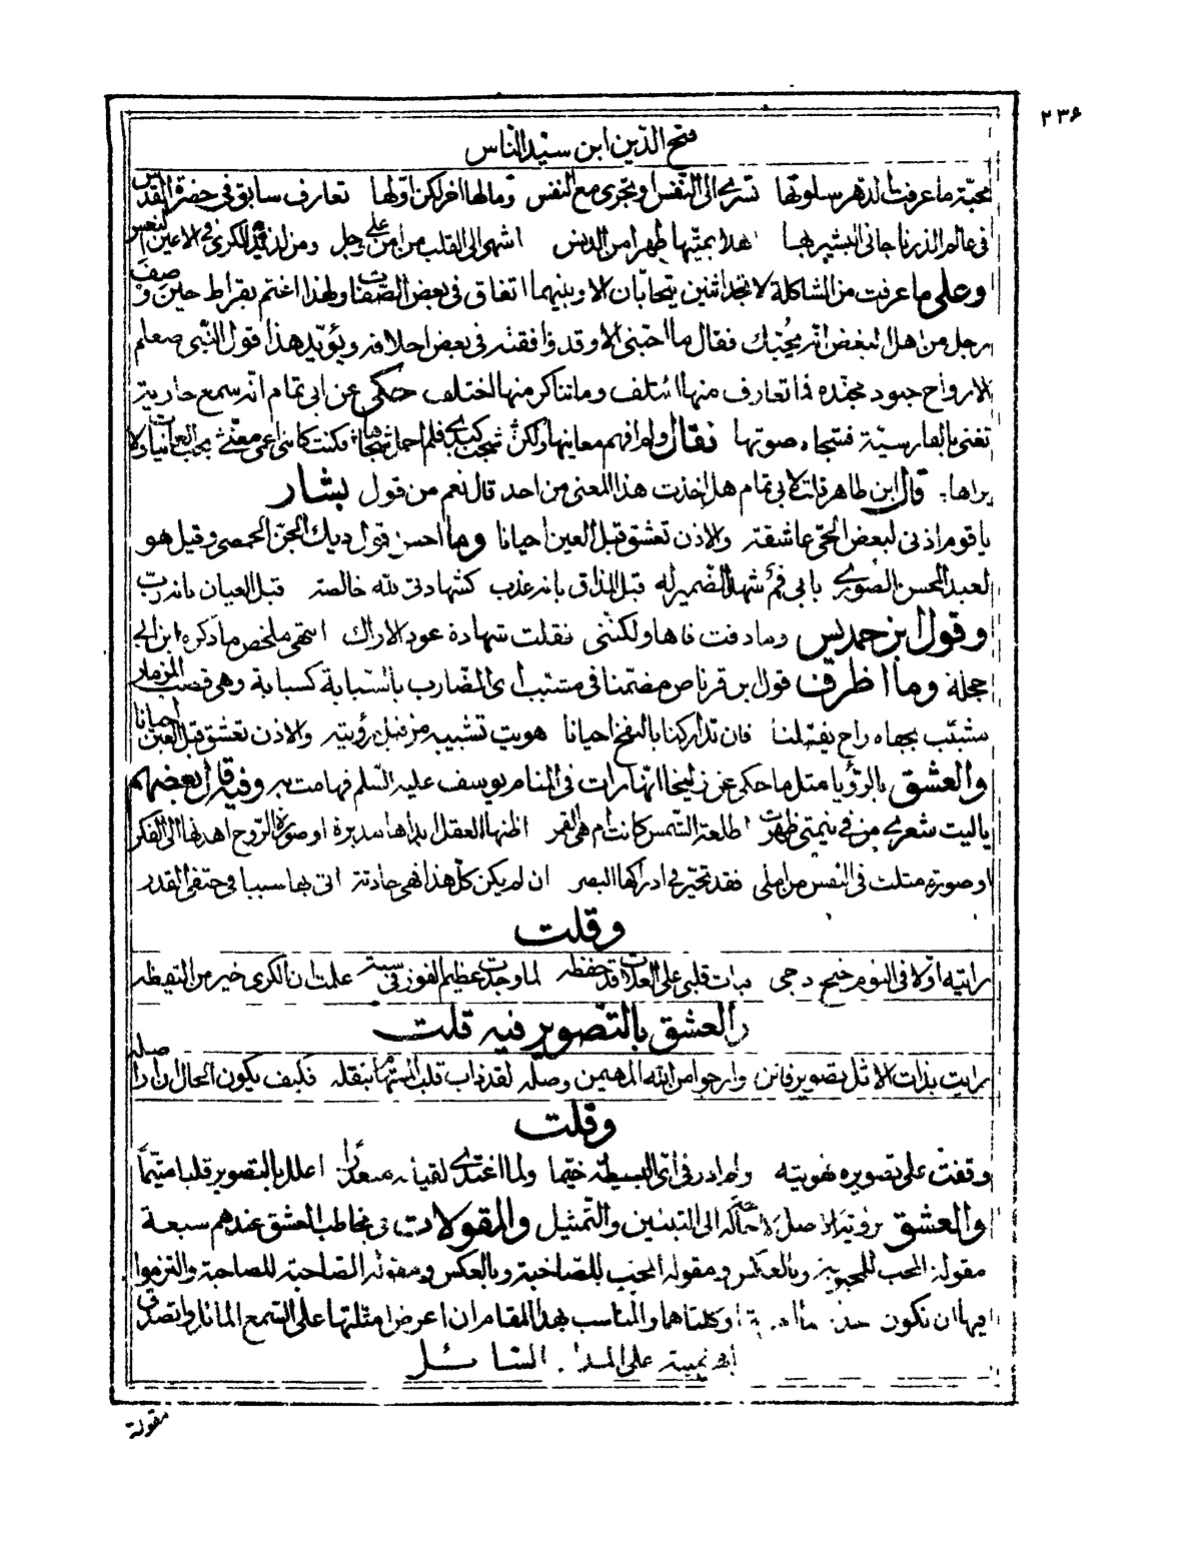 ٢٣٦
فتح الدين ابن سيد الناس
محبة ما عرفت الدهر سلوتها تسري الى النفس او تجرى مع النفس وما لها اخر لكن اولها تعارف سابق فى حضرة القدس
فى عالم الذر ناجانى البشير بها اشهى الى القلب من امن على وجل ومن لذيذ الكرى فى الاعين النعس
وعلى ما عرفت من المشاكلة لا تجد اثنين يتحابان الا وبينهما اتفاق فى بعض الصفات ولهذا اغتم بقراط حين وصف
رجل من اهل النقص انه يحبك فقال ما احبنى الا وقد وافقته فى بعض اخلاقه ويؤيد هذا قول النبى صلعم
الارواح جنود مجنده فما تعارف منها ائتلف وما تناكر منها اختلف حكى عن ابى تمام انه سمع جارية
تغنى بالفارسية فشجاه صوتها فقال ولم افهم معانيها ولكن شجت كبدي فلم اجهل شجاها فكنت كاننى اعمى معنى يحب الغانيات ولا
يراها: قال ابن طاهر قلت لابى تمام هل اخذت هذا المعنى من احد قال نعم من قول بشار
يا قوم اذنى لبعض الحى عاشقة والاذن تعشق قبل العين احيانا وما احسن قول ديك الجن الحمصى وقيل هو
لعبد المحسن الصوري بابى فم شهد الضمير له قبل المذاق بانه عذب كشهادتى لله خالصة قبل العيان بانه رب
وقول ابن حمديس وما ذقت فاها ولكننى نقلت شهادة عود الاراك انتهى ملخص ما ذكره ابن ابى
حجلة وما اظرف قول بن قرناص مضمنا فى مشبب اى الضارب بالشبابة كسبابة وهى قصب المزمار
مشبب بجفاه راح يقتلنا فان تداركنا بالنفخ احيانا هويت تشبيبه من قبل رؤيته والاذن تعشق قبل العين احيانا
والعشق بالرؤيا مثل ما حكى عن زليخا انها رات فى المنام يوسف عليه السلم فهامت به وفيه قال بعضهم
يا ليت شعري من في منيتى ظهرت اطلعة الشمس كانت ام هى القمر اظنها العقل ابداها تدبره او صورة الروح اهدتها الى الفكر
او صورة مثلت فى النفس من املى فقد تحير فى ادراكها البصر ان لم يكن كل هذا فهى حادثة اتى بها سببا فى حتفى القدر
وقلت
رايته اولا فى النوم جنح دجى فبات قلبى على العلات قد حفظه لما وجدت عظيم الفوز فى سنة علمت ان الكرى خير من اليقظه
والعشق بالتصوير فيه قلت
رايت بذات الاثل تصوير فاتن وارجو من الله المهيمن وصله لقد ذاب قلب المستهام بنقله فكيف يكون الحال ان را اصله
وقلت
وقفت على تصويره فهويته ولم ادر فى اى البسيطة خيما ولما اغتدي لقيانه متعذرا اعلل بالتصوير قلبا متيما
والعشق برؤية الاصل لا حاجة له الى التبيين والتمثيل والمقولات فى مخاطب العشق عندهم سبعة
مقولة المحب للمحبوبة وبالعكس ومقولة المحب للصاحبة وبالعكس ومقولة الصاحبة للصاحبة والتزموا
فيها ان تكون او كلتاهما والمناسب بهذا المقام ان اعرض امثلتها على السمع المائل واتصدق
على السائل
مقولة